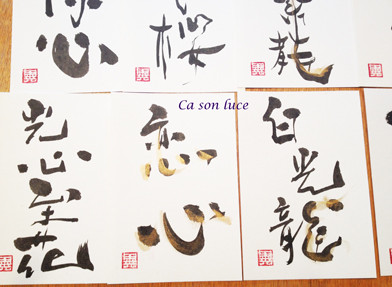 心
桜
Ca son luce
光心花
恋心
白光龍